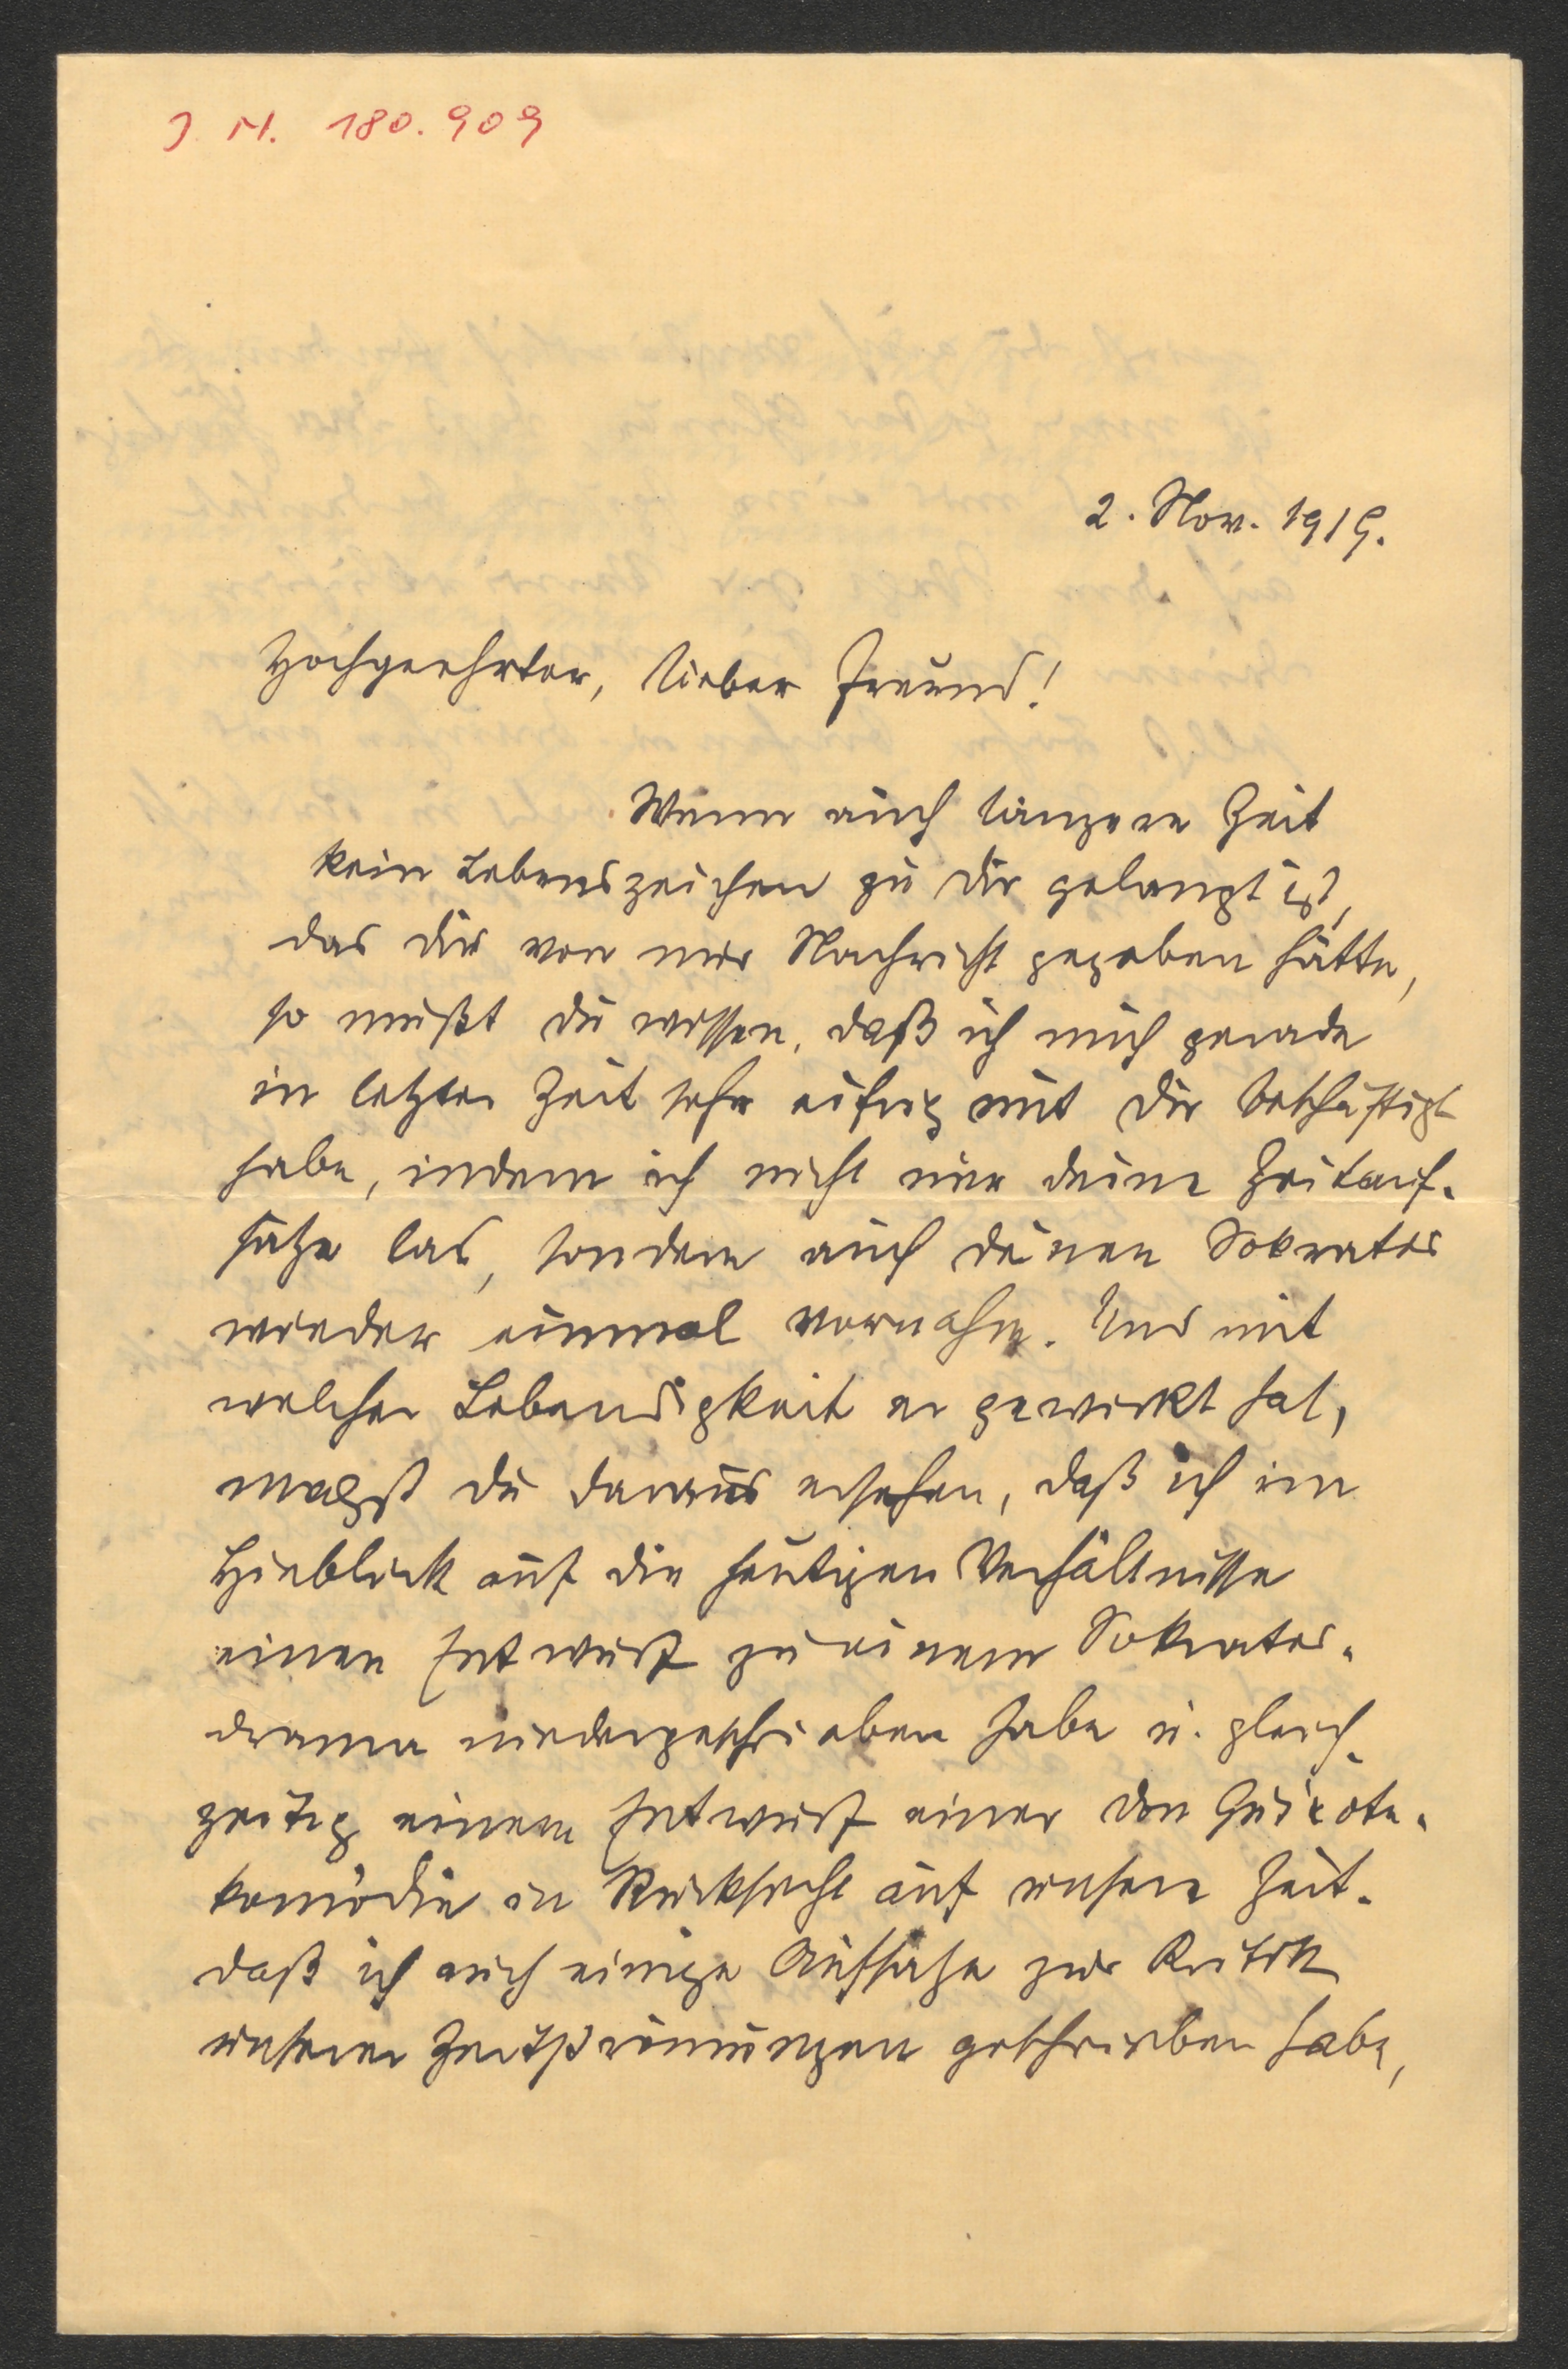 J. N. 180.909
2. Nov. 1919.
Hochgeehrter, lieber Freund!
Wenn auch längere Zeit
kein Lebenszeichen zu dir gelangt ist,
das dir von mir Nachricht gegeben hätte,
so mußt du wissen, daß ich mich gerade
in letzter Zeit sehr eifrig mit dir beschäftigt
habe, indem ich nicht nur deine Zeitauf-
sätze las, sondern auch deinen Sokrates
wieder einmal vornahm. Und mit
welcher Lebendigkeit er gewirkt hat,
magst du daraus ersehen, daß ich im
Hinblick auf die heutigen Verhältnisse
einen Entwurf zu einem Sokrates-
drama niedergeschrieben habe u. gleich-
zeitig einen Entwurf einer Don Quixote-
komödie in Rücksicht auf unsere Zeit.
daß ich auch einige Aufsätze zur Kritik
unserer Zeitströmungen geschrieben habe,